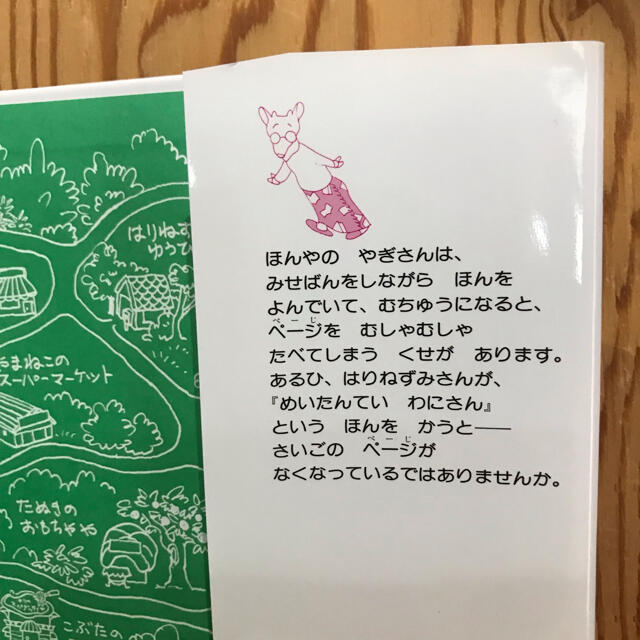 はりねず
ゆうび
やまねこの
スーパーマーケット
たぬきの
おもちゃや
こぶたの
ほんやの　やぎさんは、
みせばんをしながら　ほんを
よんでいて、むちゅうになると、
ページを　むしゃむしゃ
たべてしまう　くせが　あります。
あるひ、はりねずみさんが、
『めいたんてい　わにさん』
という　ほんを　かうと──
さいごの　ページが
なくなっているではありませんか。